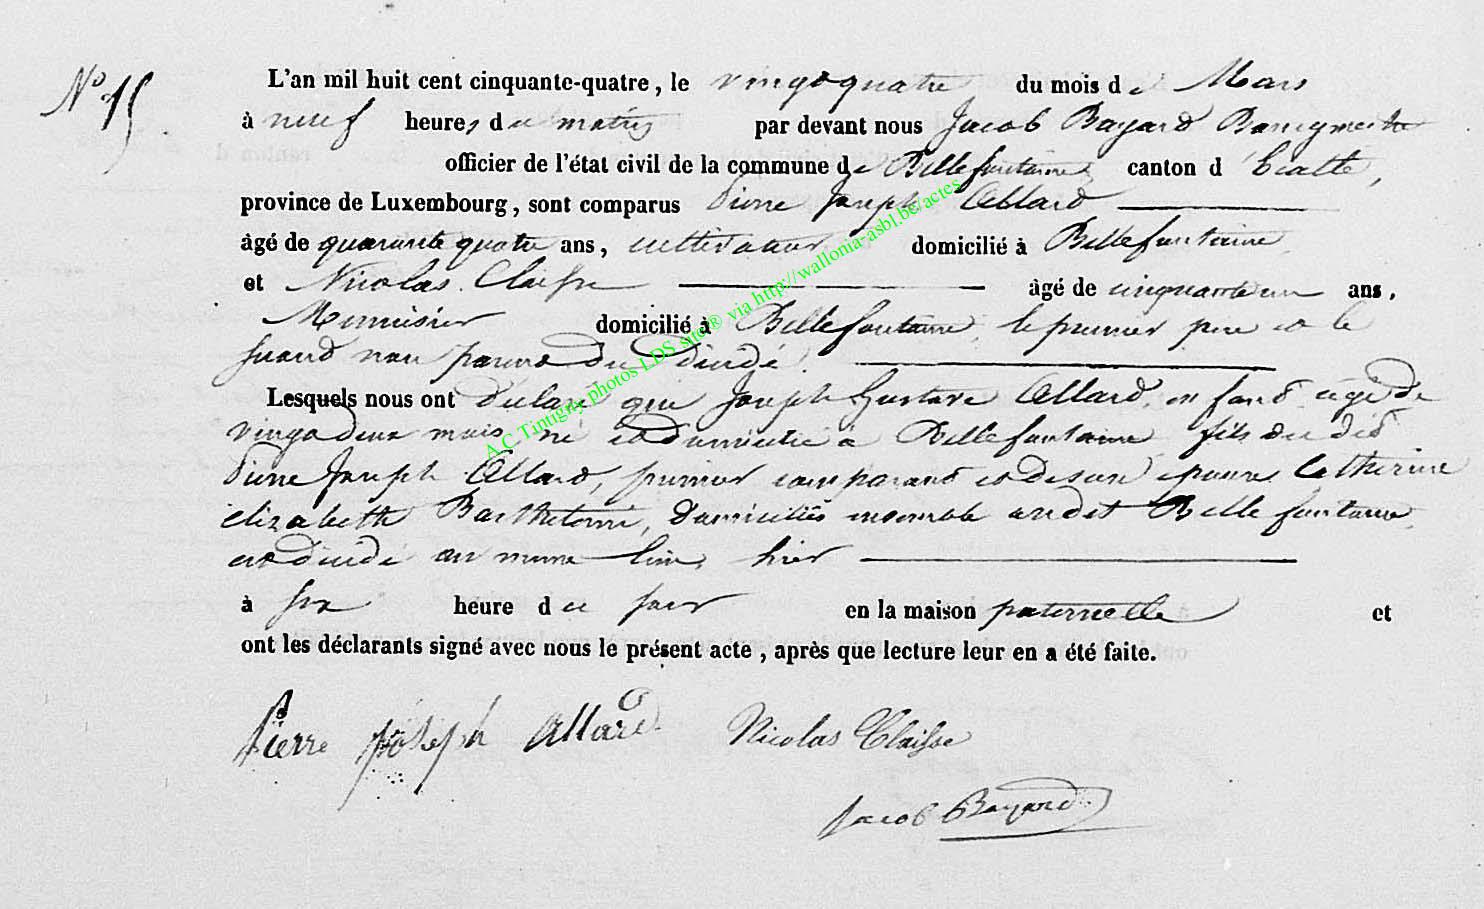 N° 15
L'an mil huit cent cinquante-quatre, le vingt quatre du mois de Mars
à neuf heures du matin par devant nous Jacob Bayard Bourgmestre
officier de l'état civil de la commune de Bellefontaine canton d'Etalle,
province de Luxembourg, sont comparus Pierre Joseph Allard
âgé de quarante quatre ans, cultivateur domicilié à Bellefontaine
et Nicolas Claisse âgé de cinquante un ans,
Menuisier domicilié à Bellefontaine, le premier père et le
second non parent du décédé.
Lesquels nous ont déclaré que Joseph Gustave Allard, enfant âgé de
vingt deux mois, né et domicilié à Bellefontaine fils du dit
Pierre Joseph Allard, premier comparant et de son épouse Catherine
Elizabeth Barthelemi, domiciliés ensemble audit Bellefontaine
est décédé au même lieu, hier
à six heure du soir en la maison paternelle et
ont les déclarants signé avec nous le présent acte, après que lecture leur en a été faite.
Pierre joseph allard Nicolas Claisse
Jacob Bayard
A.C Tintigny photos LDS site® via http://wallonia-asbl.be/actes